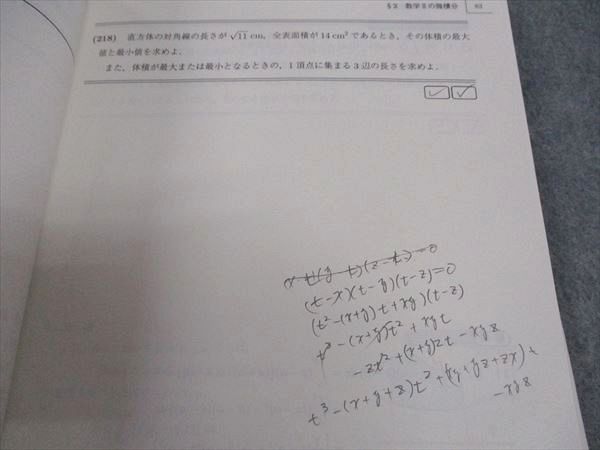 §2 数学Ⅱの微積分 63
(218) 直方体の対角線の長さが √11 cm, 全表面積が 14 cm² であるとき, その体積の最大
値と最小値を求めよ.
また, 体積が最大または最小となるときの, 1 頂点に集まる 3 辺の長さを求めよ.
(t-x)(t-y)(t-z)=0
(t²-(x+y)t+xy)(t-z)
t³-(x+y)t²+xyt
-zx²+(x+y)zt-xyz
t³-(x+y+z)t²+(xy+yz+zx)t
-xyz